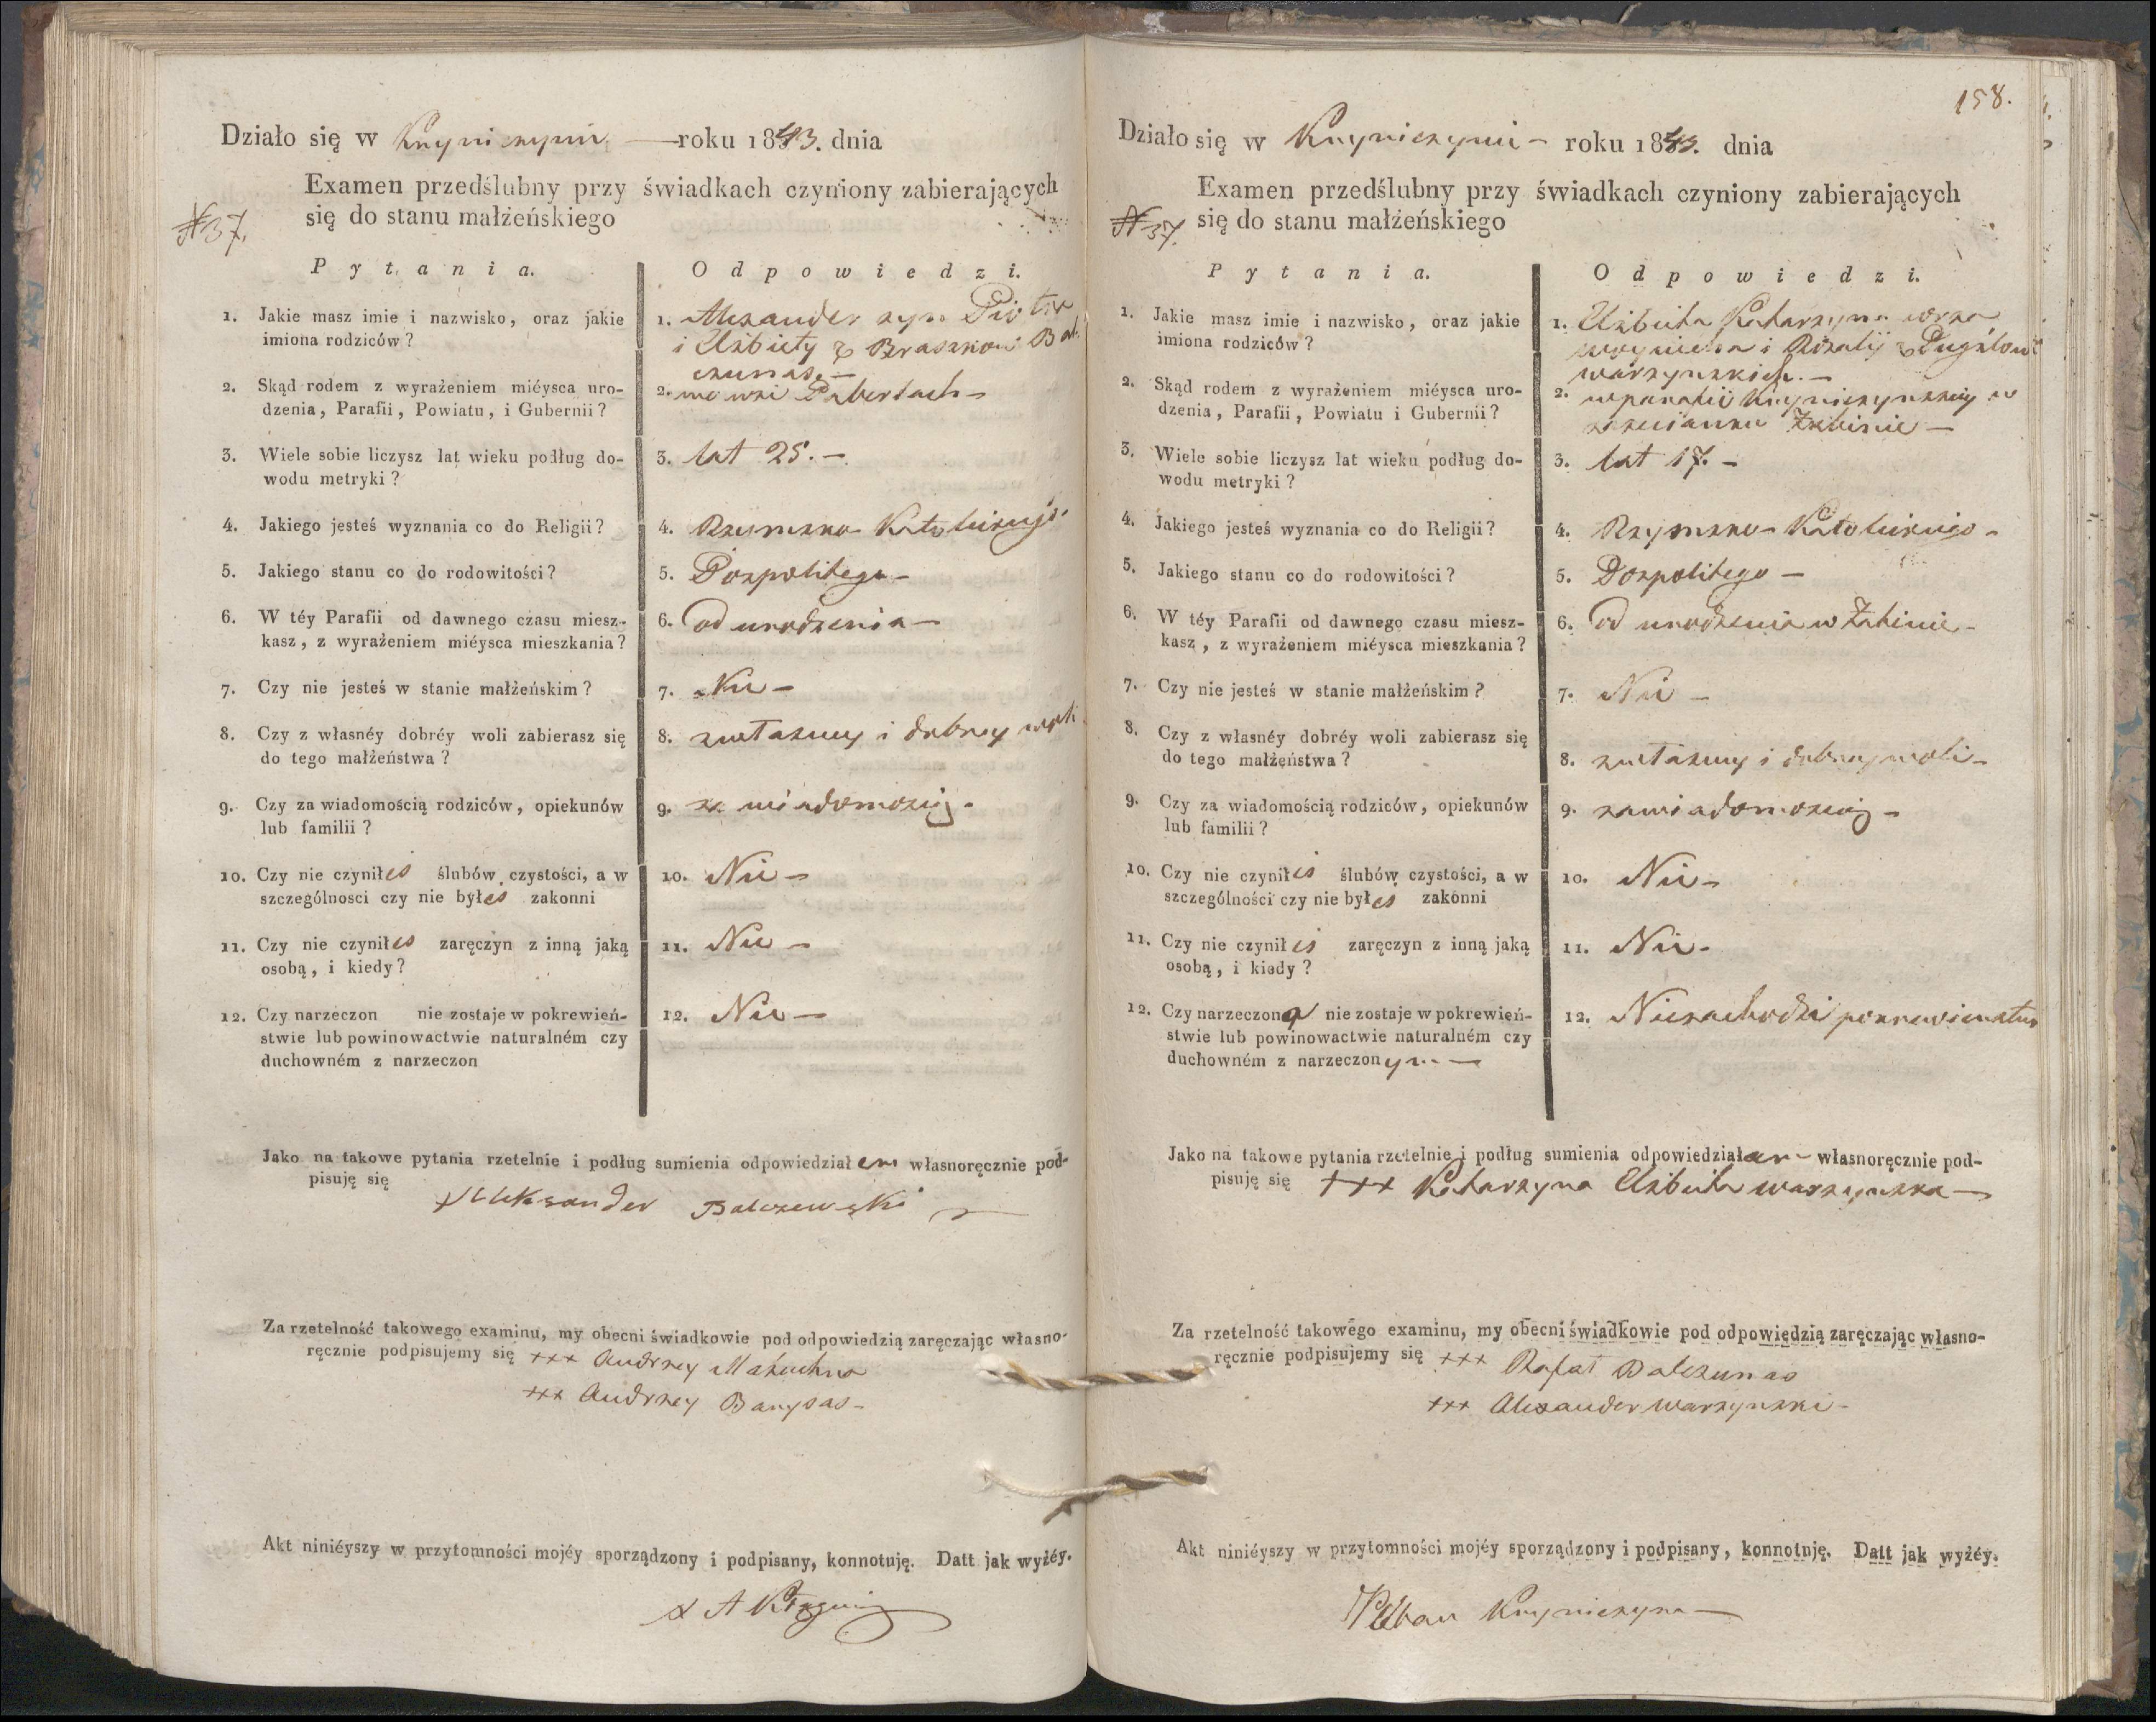 Działo się w Kryniczynie — roku 1843. dnia
Examen przedślubny przy świadkach czyniony zabierających
się do stanu małżeńskiego
N 37.
Pytania.
Odpowiedzi.
1. Jakie masz imie i nazwisko, oraz jakie
imiona rodziców?
1. Alexander syn Piotra
i Elżbiety z Braszkow Bal
czunas. —
2. Skąd rodem z wyrażeniem miéysca uro-
dzenia, Parafii, Powiatu, i Gubernii?
2. we wsi Paberżach —
3. Wiele sobie liczysz lat wieku podług do-
wodu metryki?
3. lat 25. —
4. Jakiego jesteś wyznania co do Religii?
4. Rzymsko Katolickiego
5. Jakiego stanu co do rodowitości?
5. Pospolitego —
6. W téy Parafii od dawnego czasu miesz-
kasz, z wyrażeniem miéysca mieszkania?
6. od urodzenia —
7. Czy nie jesteś w stanie małżeńskim?
7. Nie —
8. Czy z własnéy dobréy woli zabierasz się
do tego małżeństwa?
8. z własney i dobrey woli
9. Czy za wiadomością rodziców, opiekunów
lub familii?
9. za wiadomością —
10. Czy nie czyniłeś ślubów czystości, a w
szczególnosci czy nie byłeś zakonni
10. Nie —
11. Czy nie czyniłeś zaręczyn z inną jaką
osobą, i kiedy?
11. Nie —
12. Czy narzeczon nie zostaje w pokrewień-
stwie lub powinowactwie naturalném czy
duchowném z narzeczon
12. Nie —
Jako na takowe pytania rzetelnie i podług sumienia odpowiedziałem własnoręcznie pod-
pisuję się
Aleksander Balczewski
Za rzetelność takowego examinu, my obecni świadkowie pod odpowiedzią zaręczając własno-
ręcznie podpisujemy się +++ Andrzey Małachna
+++ Andrzey Barysas —
Akt niniéyszy w przytomności mojéy sporządzony i podpisany, konnotuję. Datt jak wyżéy.
X A
158.
Działo się w Kryniczynie — roku 1843. dnia
Examen przedślubny przy świadkach czyniony zabierających
się do stanu małżeńskiego
N 37.
Pytania.
Odpowiedzi.
1. Jakie masz imie i nazwisko, oraz jakie
imiona rodziców?
1. Elżbieta Katarzyna corka
Woyciecha i Rozalij z
Warzynskich. —
2. Skąd rodem z wyrażeniem miéysca uro-
dzenia, Parafii, Powiatu i Gubernii?
2. w parafii Kryniczynskiey w
zascianku Żabinie —
3. Wiele sobie liczysz lat wieku podług do-
wodu metryki?
3. lat 17. —
4. Jakiego jesteś wyznania co do Religii?
4. Rzymsko Katolickiego —
5. Jakiego stanu co do rodowitości?
5. Pospolitego —
6. W téy Parafii od dawnego czasu miesz-
kasz, z wyrażeniem miéysca mieszkania?
6. od urodzenia w Żabinie —
7. Czy nie jesteś w stanie małżeńskim?
7. Nie —
8. Czy z własnéy dobréy woli zabierasz się
do tego małżeństwa?
8. z własney i dobrey woli —
9. Czy za wiadomością rodziców, opiekunów
lub familii?
9. za wiadomością —
10. Czy nie czyniłeś ślubów czystości, a w
szczególności czy nie byłeś zakonni
10. Nie —
11. Czy nie czyniłeś zaręczyn z inną jaką
osobą, i kiedy?
11. Nie —
12. Czy narzeczona nie zostaje w pokrewień-
stwie lub powinowactwie naturalném czy
duchowném z narzeczonym —
12. Niezachodzi pokrewienstwo
Jako na takowe pytania rzetelnie i podług sumienia odpowiedziałam — własnoręcznie pod-
pisuję się +++ Katarzyna Elżbieta Warzynska —
Za rzetelność takowego examinu, my obecni świadkowie pod odpowiedzią zaręczając własno-
ręcznie podpisujemy się +++ Rafał Balczunas
+++ Alexander Warzynski —
Akt niniéyszy w przytomności mojéy sporządzony i podpisany, konnotuję. Datt jak wyżéy.
Pleban Kryniczyna —